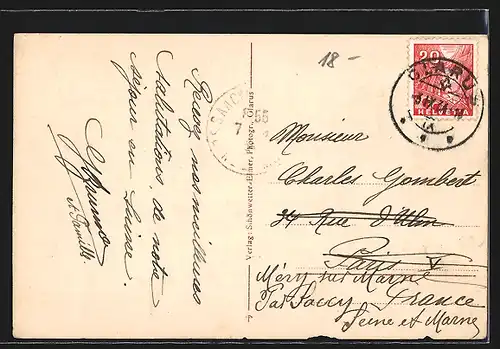 18-
Recevez nos meilleures
Salutations de notre
séjour en Suisse.
et famille
Verlag: Schönwetter-Elmer, Photogr., Glarus
55
7
20
GLARUS
Monsieur
Charles Gombert
34 Rue d'Ulm
Paris V
Méry sur Marne
Par Saccy France
Seine et Marne